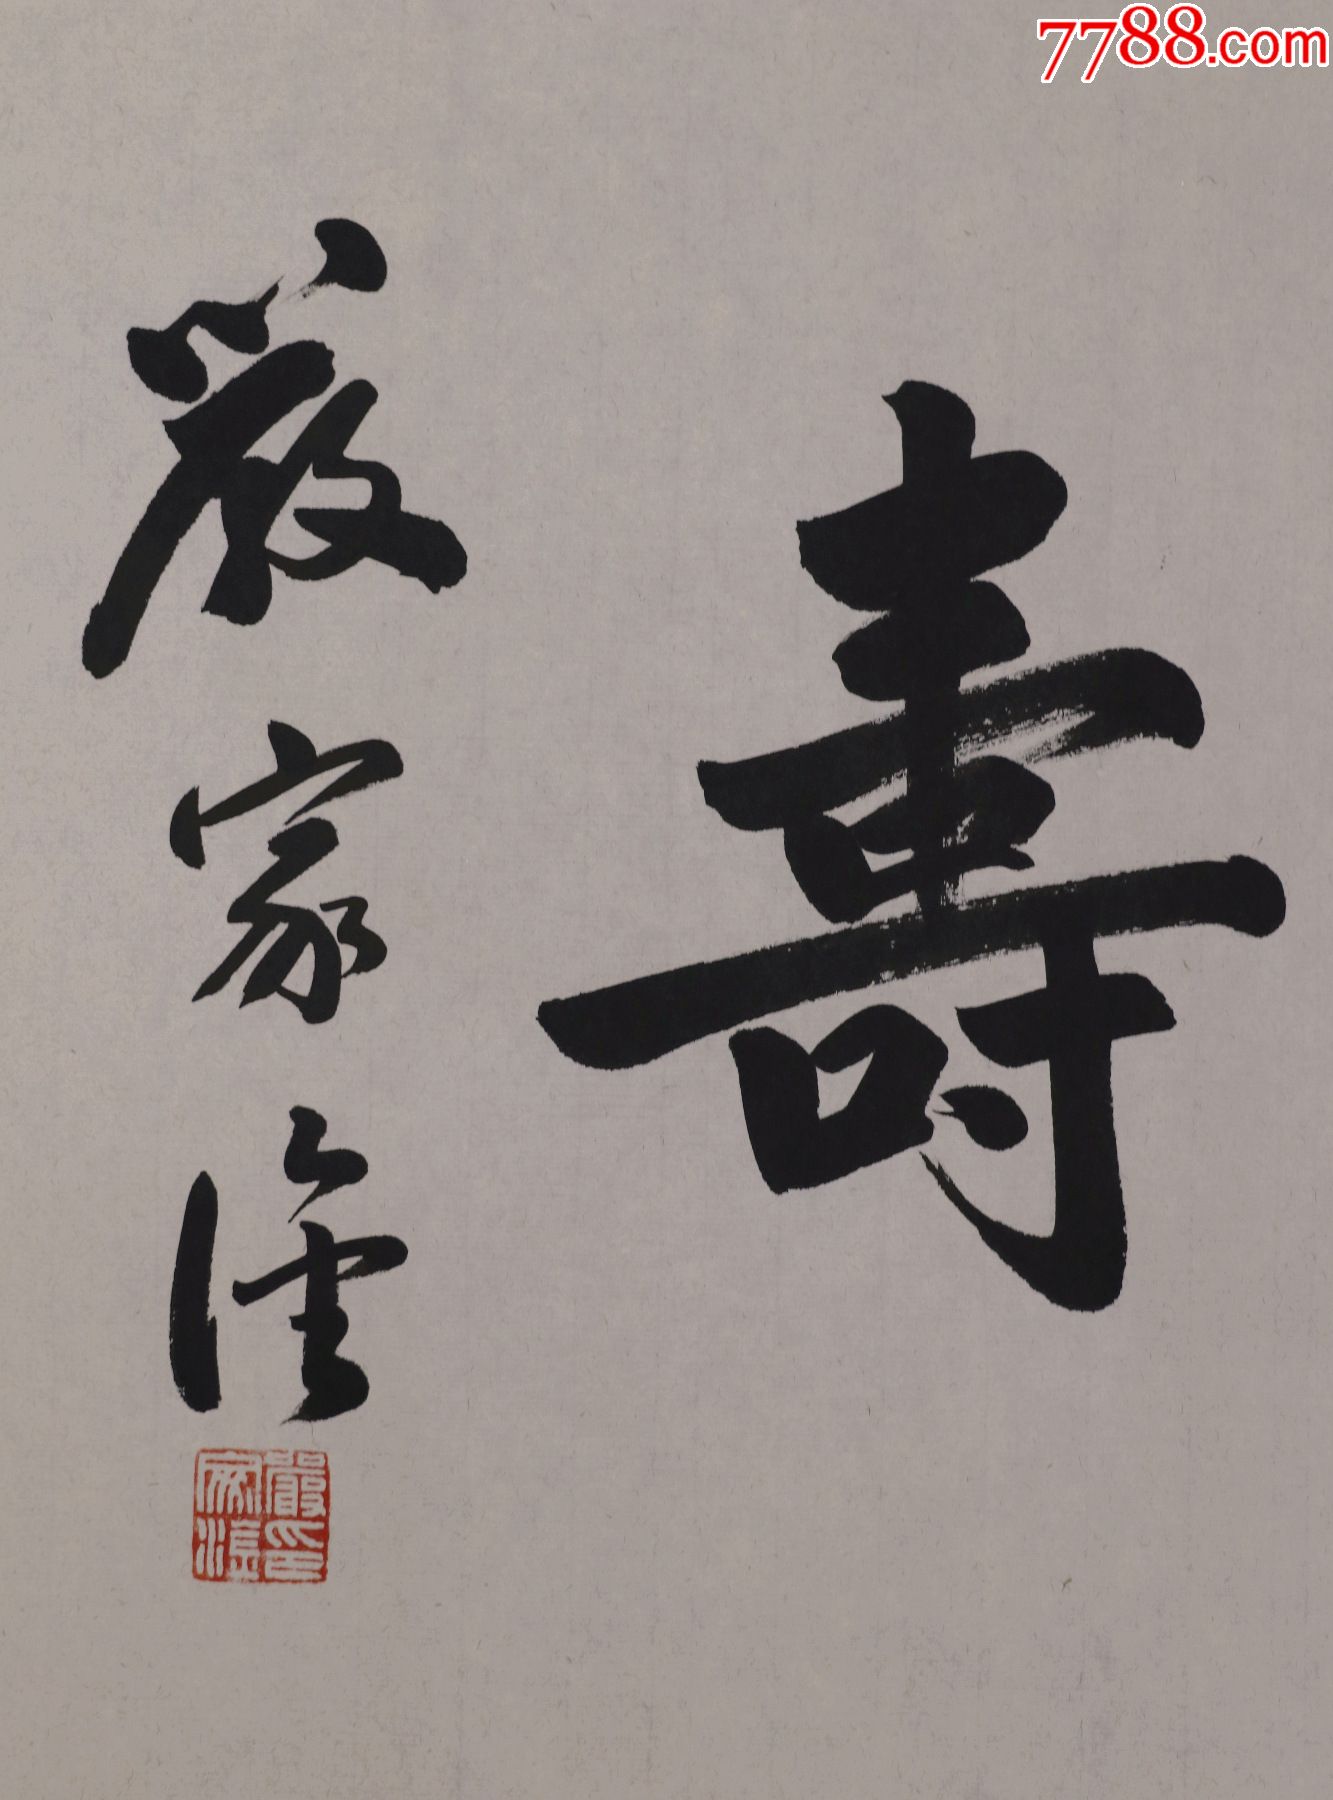 7788.com
壽
嚴家淦
嚴家淦印